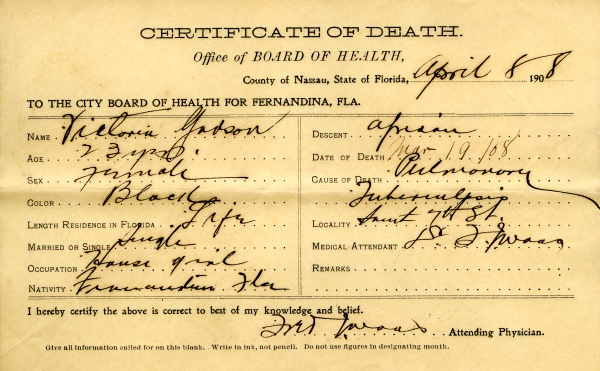 CERTIFICATE OF DEATH.
Office of BOARD OF HEALTH,
County of Nassau, State of Florida, April 8 1908
TO THE CITY BOARD OF HEALTH FOR FERNANDINA, FLA.
NAME Victoria
AGE 23 yrs.
SEX Female
COLOR Black
LENGTH RESIDENCE IN FLORIDA Life
MARRIED OR SINGLE Single
OCCUPATION House girl
NATIVITY Fernandina Fla
DESCENT African
DATE OF DEATH Mar 19/08
CAUSE OF DEATH Pulmonary
Tuberculosis
LOCALITY 7th St.
MEDICAL ATTENDANT Dr
REMARKS
I hereby certify the above is correct to best of my knowledge and belief.
Attending Physician.
Give all information called for on this blank. Write in ink, not pencil. Do not use figures in designating month.